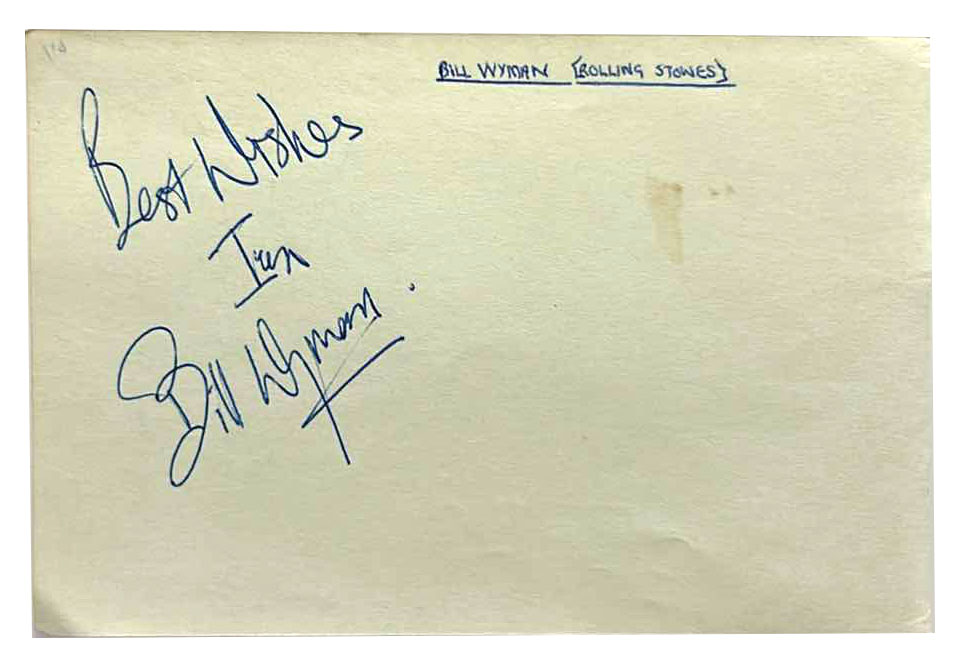 BILL WYMAN {ROLLING STONES}
Best Wishes
Bill Wyman.